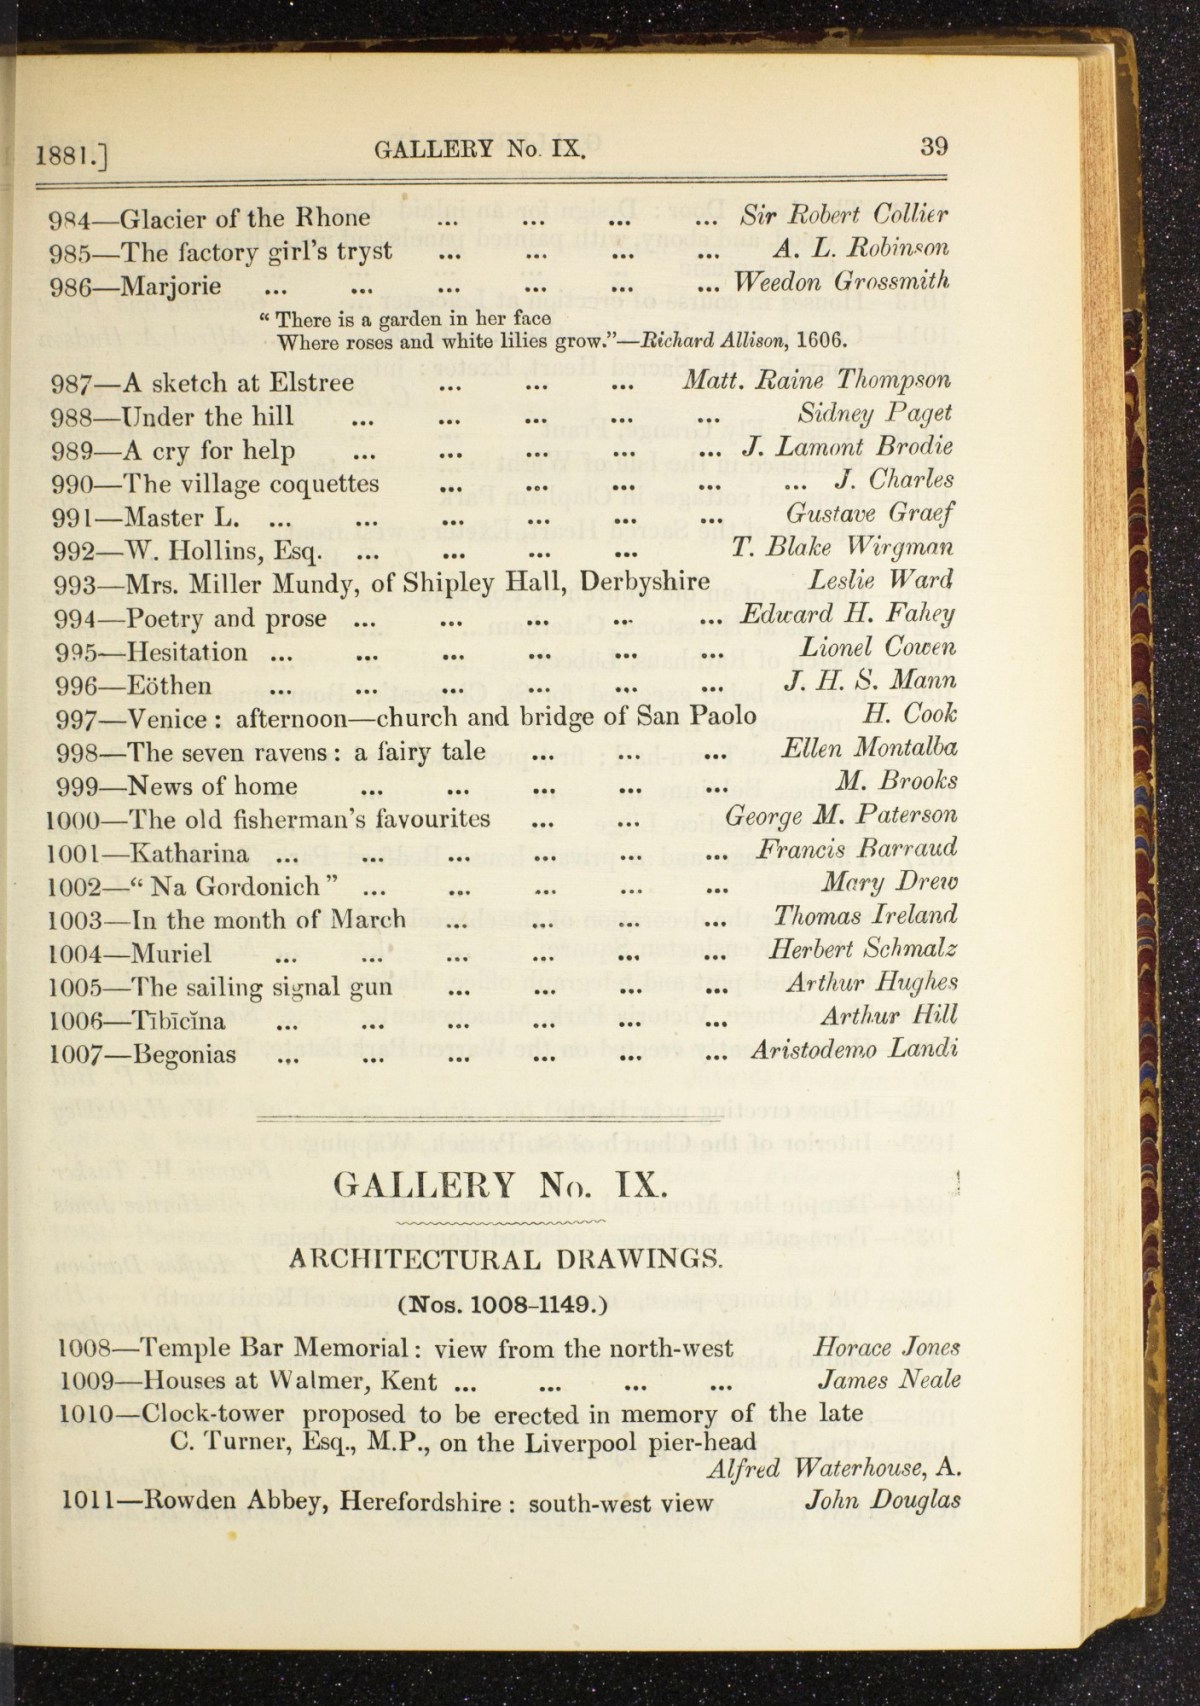 1881.] GALLERY No. IX. 39
984—Glacier of the Rhone ... ... ... ... Sir Robert Collier
985—The factory girl's tryst ... ... ... ... A. L. Robinson
986—Marjorie ... ... ... ... ... ... Weedon Grossmith
“ There is a garden in her face
Where roses and white lilies grow.”—Richard Allison, 1606.
987—A sketch at Elstree ... ... ... Matt. Raine Thompson
988—Under the hill ... ... ... ... ... Sidney Paget
989—A cry for help ... ... ... ... ... J. Lamont Brodie
990—The village coquettes ... ... ... ... ... J. Charles
991—Master L. ... ... ... ... ... ... Gustave Graef
992—W. Hollins, Esq. ... ... ... ... T. Blake Wirgman
993—Mrs. Miller Mundy, of Shipley Hall, Derbyshire Leslie Ward
994—Poetry and prose ... ... ... ... ... Edward H. Fahey
995—Hesitation ... ... ... ... ... ... Lionel Cowen
996—Eöthen ... ... ... ... ... ... J. H. S. Mann
997—Venice : afternoon—church and bridge of San Paolo H. Cook
998—The seven ravens : a fairy tale ... ... ... Ellen Montalba
999—News of home ... ... ... ... ... M. Brooks
1000—The old fisherman's favourites ... ... George M. Paterson
1001—Katharina ... ... ... ... ... ... Francis Barraud
1002—“ Na Gordonich ” ... ... ... ... ... Mary Drew
1003—In the month of March ... ... ... ... Thomas Ireland
1004—Muriel ... ... ... ... ... ... Herbert Schmalz
1005—The sailing signal gun ... ... ... ... Arthur Hughes
1006—Tībīcĭna ... ... ... ... ... ... Arthur Hill
1007—Begonias ... ... ... ... ... ... Aristodemo Landi
GALLERY No. IX.
ARCHITECTURAL DRAWINGS.
(Nos. 1008–1149.)
1008—Temple Bar Memorial : view from the north-west Horace Jones
1009—Houses at Walmer, Kent ... ... ... ... James Neale
1010—Clock-tower proposed to be erected in memory of the late
C. Turner, Esq., M.P., on the Liverpool pier-head
Alfred Waterhouse, A.
1011—Rowden Abbey, Herefordshire : south-west view John Douglas